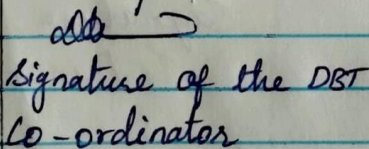 Signature of the DBT
Co-ordinator